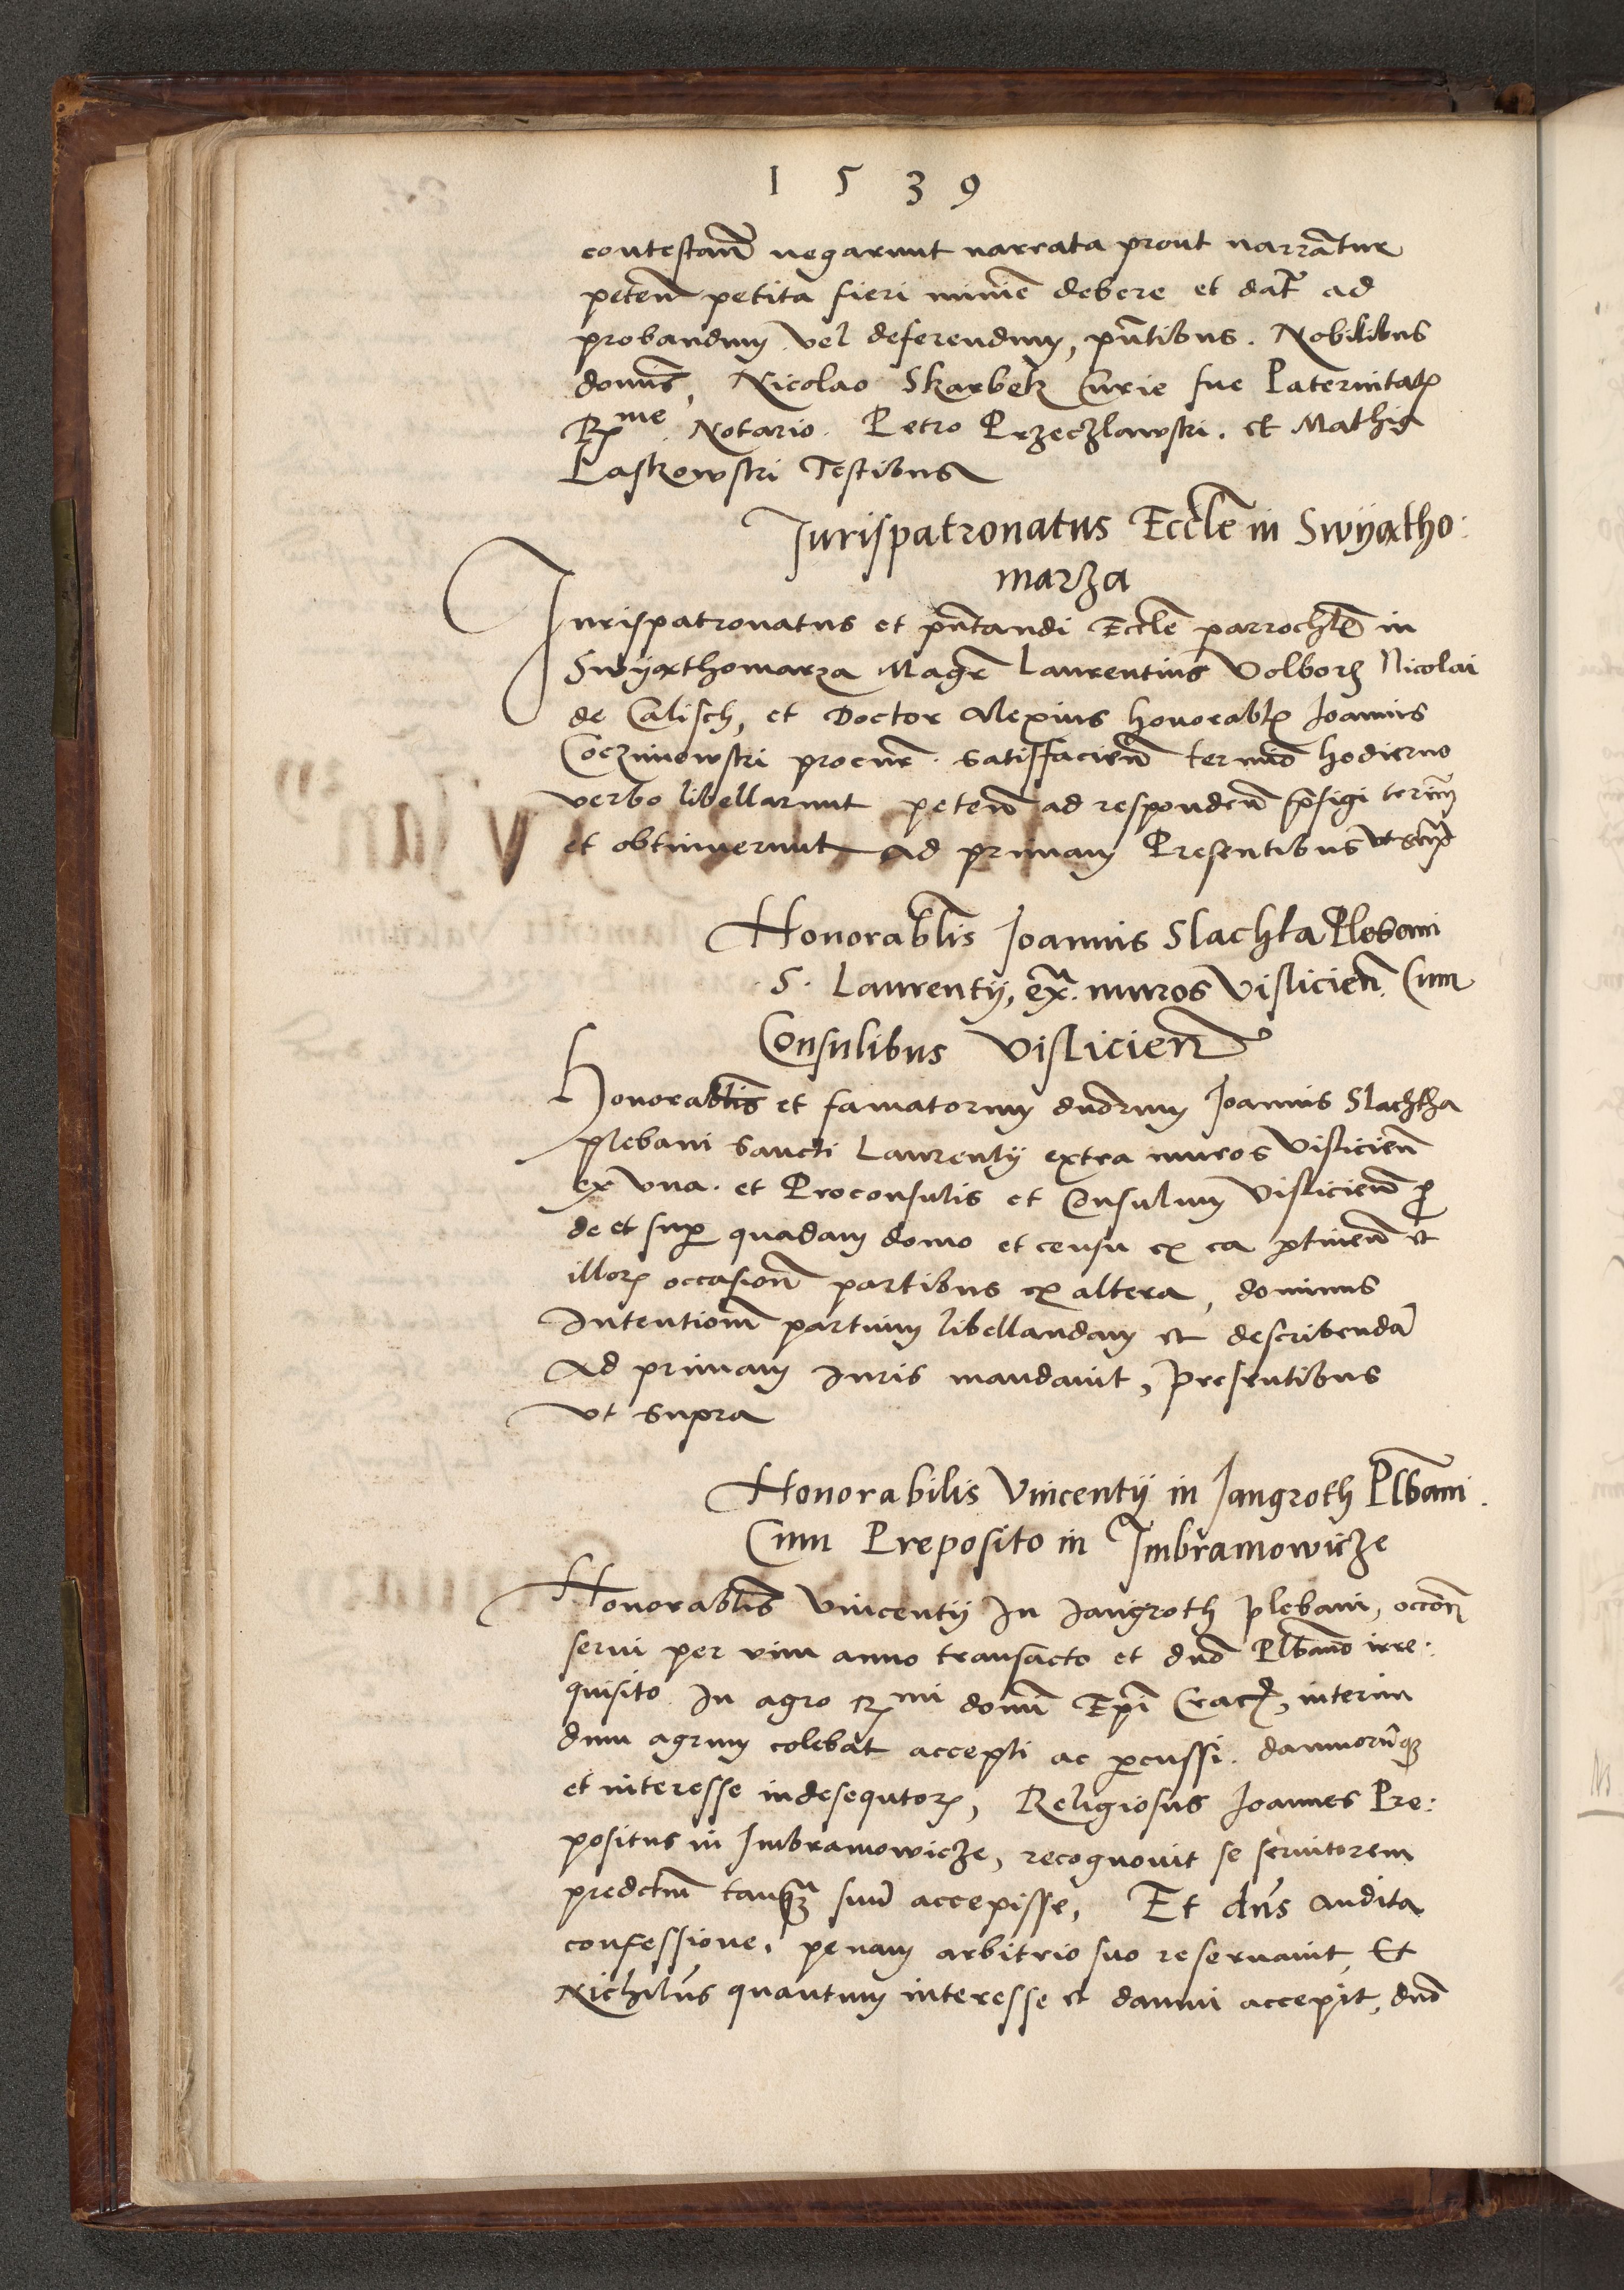 1 5 3 9
contestanď negarunt narrata prout narrãntur
petenď petita fieri minĩe debere et datr̃ ad
probandum vel deferendum, pñtibus. Nobilibus
domĩs, Nicolao Skarbek Curie sue Paternitatꝭ
Rme. Notario. Petro Przeczlawski. et Mathia
Laskowski Testibus
Jurispatronatus Eccłe in Swyathо:
marza
Jurispatronatus et pñtandi Eccłe parrochł in
Swyathomarza Magr̃ Laurentius Volborz Nicolai
de Calisch, et Doctor Alexius honorablꝭ Joannis
Coczmowski procur̃. satisfacienď termĩo hodierno
verbo libellarunt petenď ad respondenď p̃figi termĩ
et obtinuerunt Ad primam Presentibus vt sup̃
Honorabłis Joannis Slachta Plebani
S. Laurentij, ex̃. muros Visliciens̃. Cum
Consulibus Visliciens̃
Honorabłis et famatorum dñorum Joannis Slachtha
plebani Sancti Laurentij extra muros Visliciens̃
ex vna. et Proconsulis et Consulum Visliciens̃ ꝓ
de et suꝑ quadam domo et censu ex ea ꝑtinenď et
illorꝝ occasionẽ partibus ex altera, dominus
Intentionẽ partium libellandam et describendã
Ad primam Juris mandauit, presentibus
vt supra
Honorabilis Vincentij in Jangroth Plbãni.
Cum Preposito in Imbramowicze
Honorabłis Vincentij In Jangroth plebani, occõne
serui per vim anno transacto et dño Plbãno irre:
quisito In agro Rmi domĩ Epĩ Cracꝭ, interim
dum agrum colebat accepti ac ꝑcussi. damnorũqꝫ
et interesse indesequtorꝝ, Religiosus Joannes Pre:
positus in Imbramowicze, recognouit se seruitorem
predctum tanqꝫ suũ accepisse, Et dñs audita
confessione, penam arbitrio suo reseruauit, Et
Nichilũs quantum interesse et damni accepit, dño